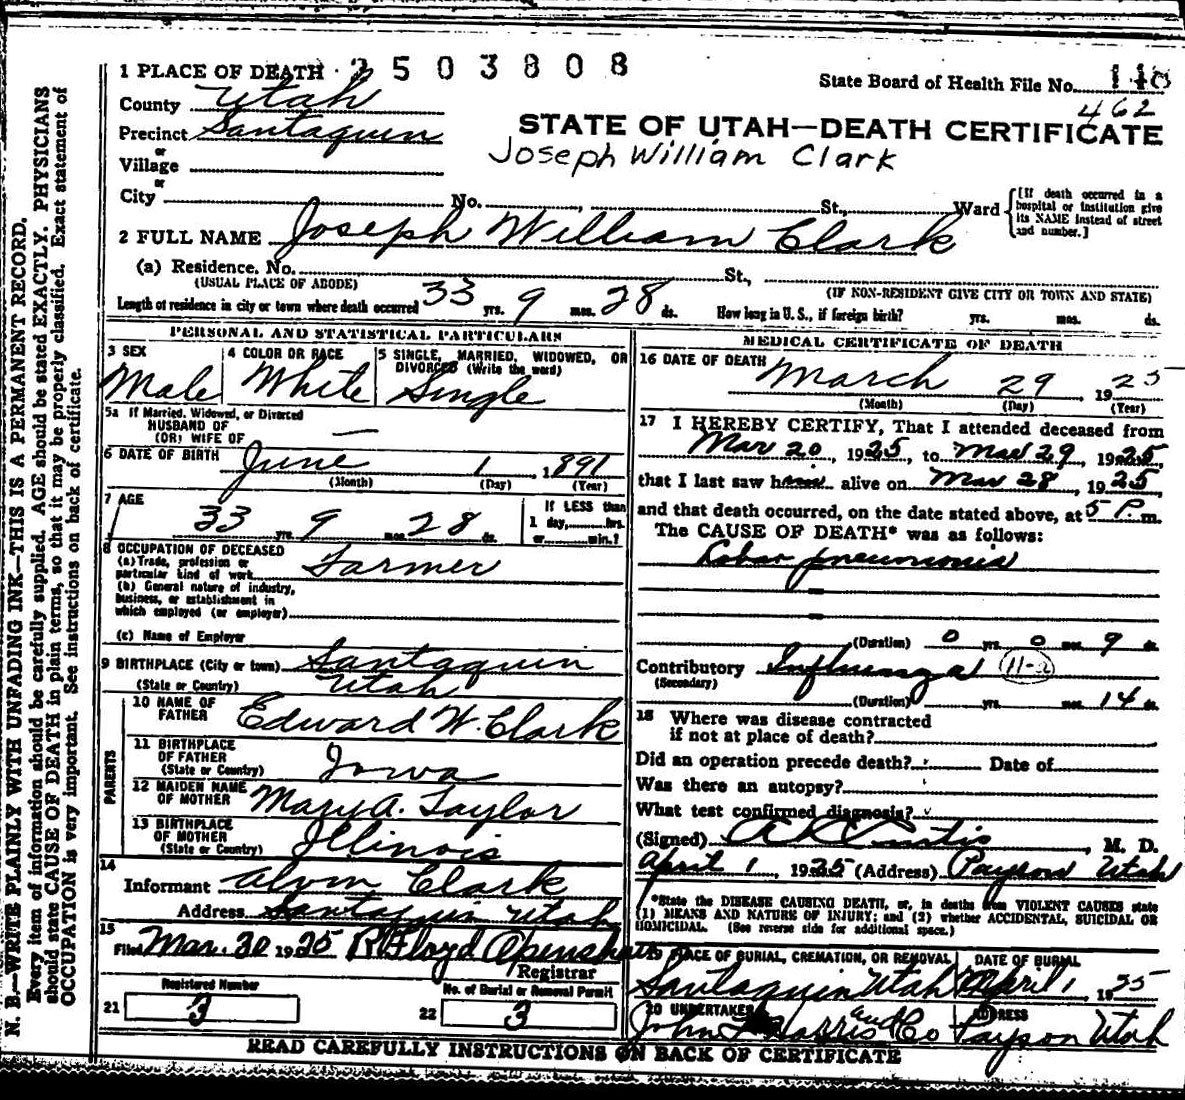 N. B.—WRITE PLAINLY WITH UNFADING INK—THIS IS A PERMANENT RECORD.
Every item of information should be carefully supplied. AGE should be stated EXACTLY. PHYSICIANS
should state CAUSE OF DEATH in plain terms, so that it may be properly classified. Exact statement of
OCCUPATION is very important. See instructions on back of certificate.
1 PLACE OF DEATH
2503808
State Board of Health File No. 110
462
County Utah
Precinct Santaquin
or
Village
or
City No. St., Ward
STATE OF UTAH—DEATH CERTIFICATE
Joseph William Clark
[If death occurred in a
hospital or institution give
its NAME instead of street
and number.]
2 FULL NAME Joseph William Clark
(a) Residence. No. St.,
(USUAL PLACE OF ABODE) (IF NON-RESIDENT GIVE CITY OR TOWN AND STATE)
Length of residence in city or town where death occurred 33 yrs. 9 mos. 28 ds. How long in U. S., if foreign birth? yrs. mos. ds.
PERSONAL AND STATISTICAL PARTICULARS
3 SEX 4 COLOR OR RACE 5 SINGLE, MARRIED, WIDOWED, OR
DIVORCED (Write the word)
Male White Single
5a If Married, Widowed, or Divorced
HUSBAND OF
(OR) WIFE OF —
6 DATE OF BIRTH June 1, 1891
(Month) (Day) (Year)
7 AGE 33 yrs. 9 mos. 28 ds.
If LESS than
1 day, hrs.
or min.?
8 OCCUPATION OF DECEASED
(a) Trade, profession or
particular kind of work Farmer
(b) General nature of industry,
business, or establishment in
which employed (or employer)
(c) Name of Employer
9 BIRTHPLACE (City or town) Santaquin
(State or Country) Utah
PARENTS
10 NAME OF
FATHER Edward W. Clark
11 BIRTHPLACE
OF FATHER
(State or Country) Iowa
12 MAIDEN NAME
OF MOTHER Mary A. Taylor
13 BIRTHPLACE
OF MOTHER
(State or Country) Illinois
14
Informant Alvin Clark
Address Santaquin Utah
15
Filed Mar. 30 1925 R Floyd Openshaw
Registrar
Registered Number
21 3
No. of Burial or Removal Permit
22 3
MEDICAL CERTIFICATE OF DEATH
16 DATE OF DEATH March 29 1925
(Month) (Day) (Year)
17 I HEREBY CERTIFY, That I attended deceased from
Mar 20, 1925, to Mar 29, 1925,
that I last saw h alive on Mar 28, 1925
and that death occurred, on the date stated above, at 5 P. m.
The CAUSE OF DEATH* was as follows:
Lobar pneumonia
(Duration) 0 yrs. 0 mos. 9 ds.
Contributory Influenza 11-2
(Secondary)
(Duration) yrs. mos. 14 ds.
18 Where was disease contracted
if not at place of death?
Did an operation precede death? Date of
Was there an autopsy?
What test confirmed diagnosis?
(Signed) Curtis, M. D.
April 1, 1925 (Address) Payson Utah
*State the DISEASE CAUSING DEATH, or, in deaths from VIOLENT CAUSES state
(1) MEANS AND NATURE OF INJURY; and (2) whether ACCIDENTAL, SUICIDAL OR
HOMICIDAL. (See reverse side for additional space.)
19 PLACE OF BURIAL, CREMATION, OR REMOVAL DATE OF BURIAL
Santaquin Utah April 1, 1925
20 UNDERTAKER ADDRESS
John and Co Payson Utah
READ CAREFULLY INSTRUCTIONS ON BACK OF CERTIFICATE